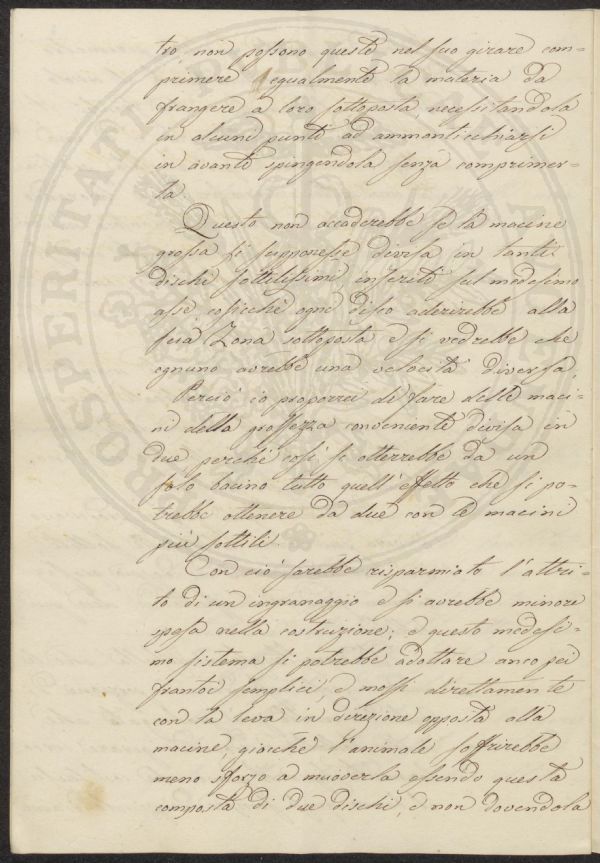 tro non possono queste nel suo girare com=
primere egualmente la materia da
frangere a loro sottoposta, necessitandola
in alcuni punti ad ammonticchiarsi
in avanti spingendola senza comprimer=
la.
Questo non accaderebbe se la macine
grossa si supponesse divisa in tanti
dischi sottilissimi inseriti sul medesimo
asse, cosicchè ogni disco aderirebbe alla
sua Zona sottoposta e si vedrebbe che
ognuno avrebbe una velocità diversa.
Perciò io proporrei di fare delle maci=
ni della grossezza conveniente divisa in
due perchè così si otterrebbe da un
solo bacino tutto quell'effetto che si po=
trebbe ottenere da due con le macini
più sottili.
Con ciò sarebbe risparmiato l'attri=
to di un ingranaggio e si avrebbe minore
spesa nella costruzione; e questo medesi=
mo sistema si potrebbe adottare anco pei
frantoi semplici, e mossi direttamente
con la leva in direzione opposta alla
macine, giacchè l'animale soffrirebbe
meno sforzo a muoverla essendo questa
composta di due dischi, e non dovendola
PROSPERITATI